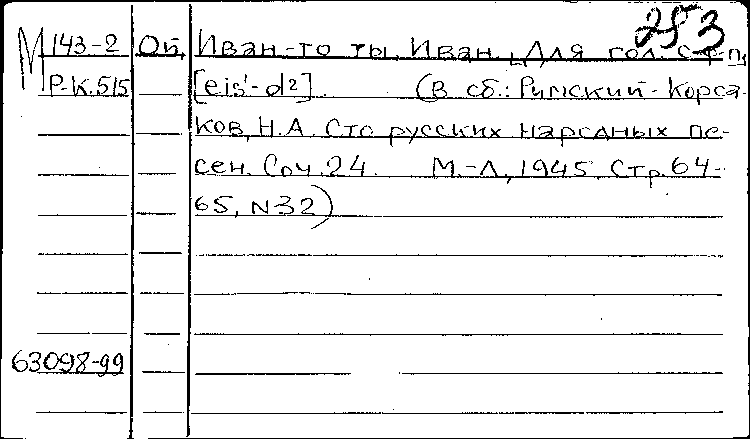 253
М 143-2 Ой, Иван-то ты, Иван. Для гол. с ф-п.
Р-К.515 [eis'-d²]. (В сб.: Римский-Корса-
ков, Н.А. Сто русских народных пе-
сен. Соч. 24. М.-Л., 1945. Стр. 64-
65, N32)
63098-99